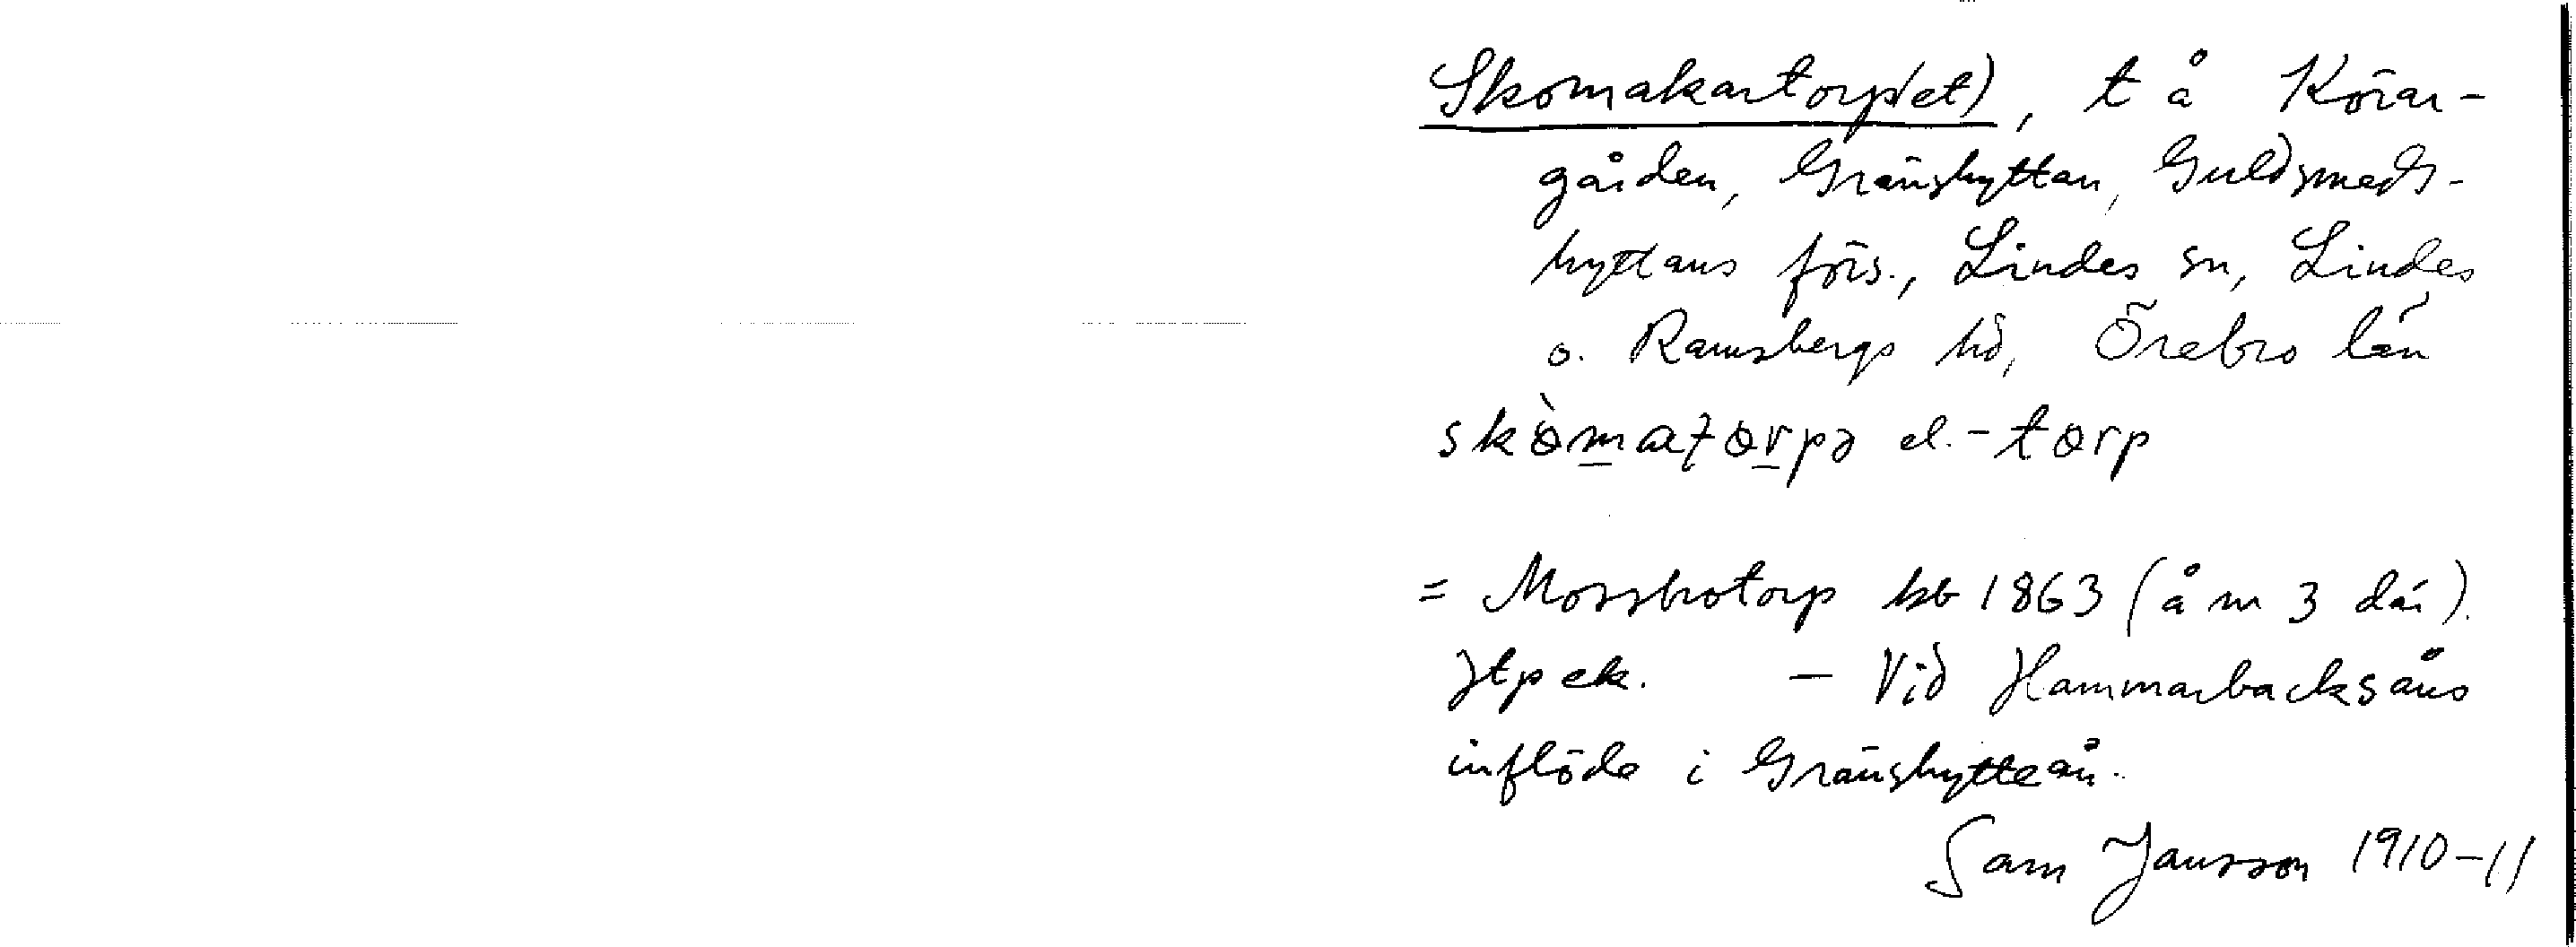 Skomakartorp(et), t å Körar-
gården, Gränshyttan, Guldsmeds-
hyttans förs., Lindes sn, Lindes
o. Ramsbergs hd, Örebro län
skòmatorpə el. -torp
= Mossbrotorp hb 1863 (å m 3 där).
Jtp ek. — Vid Hammarbacksåns
inflöde i Gränshytteån.
Sam Jansson 1910-11